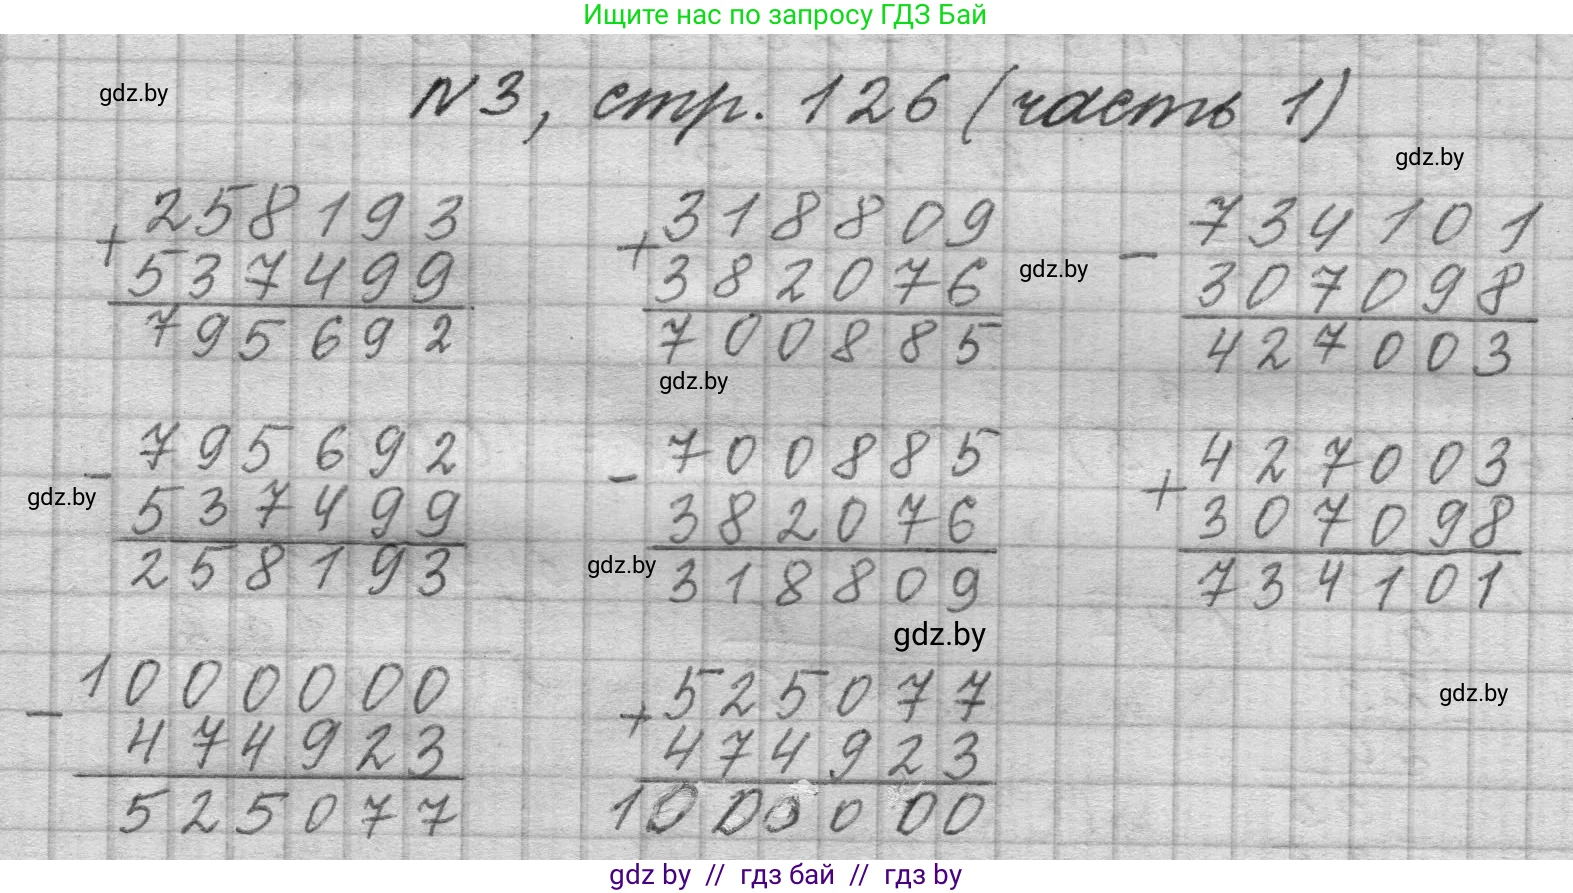 Ищите нас по запросу ГДЗ Бай
gdz.by
N3, стр. 126 (часть 1)
gdz.by
+ 258193
537499
795692
+ 318809
382076
700885
gdz.by
- 734101
307098
427003
gdz.by
- 795692
537499
258193
gdz.by
- 700885
382076
318809
gdz.by
+ 427003
307098
734101
gdz.by
- 1000000
474923
525077
+ 525077
474923
1000000
gdz.by
gdz by // гдз бай // gdz by